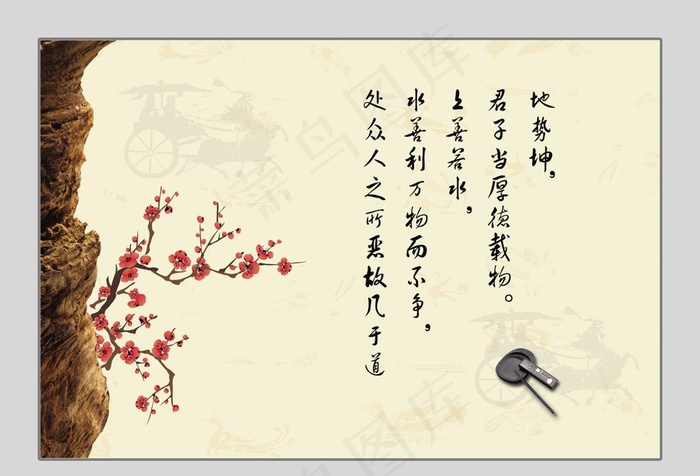 地势坤，
君子当厚德载物。
上善若水，
水善利万物而不争，
处众人之所恶故几于道
菜鸟图库